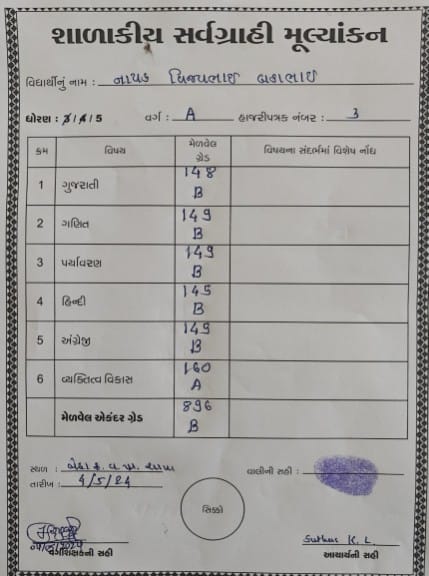 શાળાકીય સર્વગ્રાહી મૂલ્યાંકન
વિદ્યાર્થીનું નામ : નાયક વિજયભાઈ
ધોરણ : 3 / 4 / 5 વર્ગ : A હાજરીપત્રક નંબર : 3
ક્રમ વિષય મેળવેલ ગ્રેડ વિષયના સંદર્ભમાં વિશેષ નોંધ
1 ગુજરાતી 148 B
2 ગણિત 149 B
3 પર્યાવરણ 149 B
4 હિન્દી 145 B
5 અંગ્રેજી 149 B
6 વ્યક્તિત્વ વિકાસ 160 A
મેળવેલ એકંદર ગ્રેડ 896 B
સ્થળ : વાલીની સહી :
તારીખ : 4/5/24
સિક્કો
વર્ગશિક્ષકની સહી
Suthar K. L.
આચાર્યની સહી